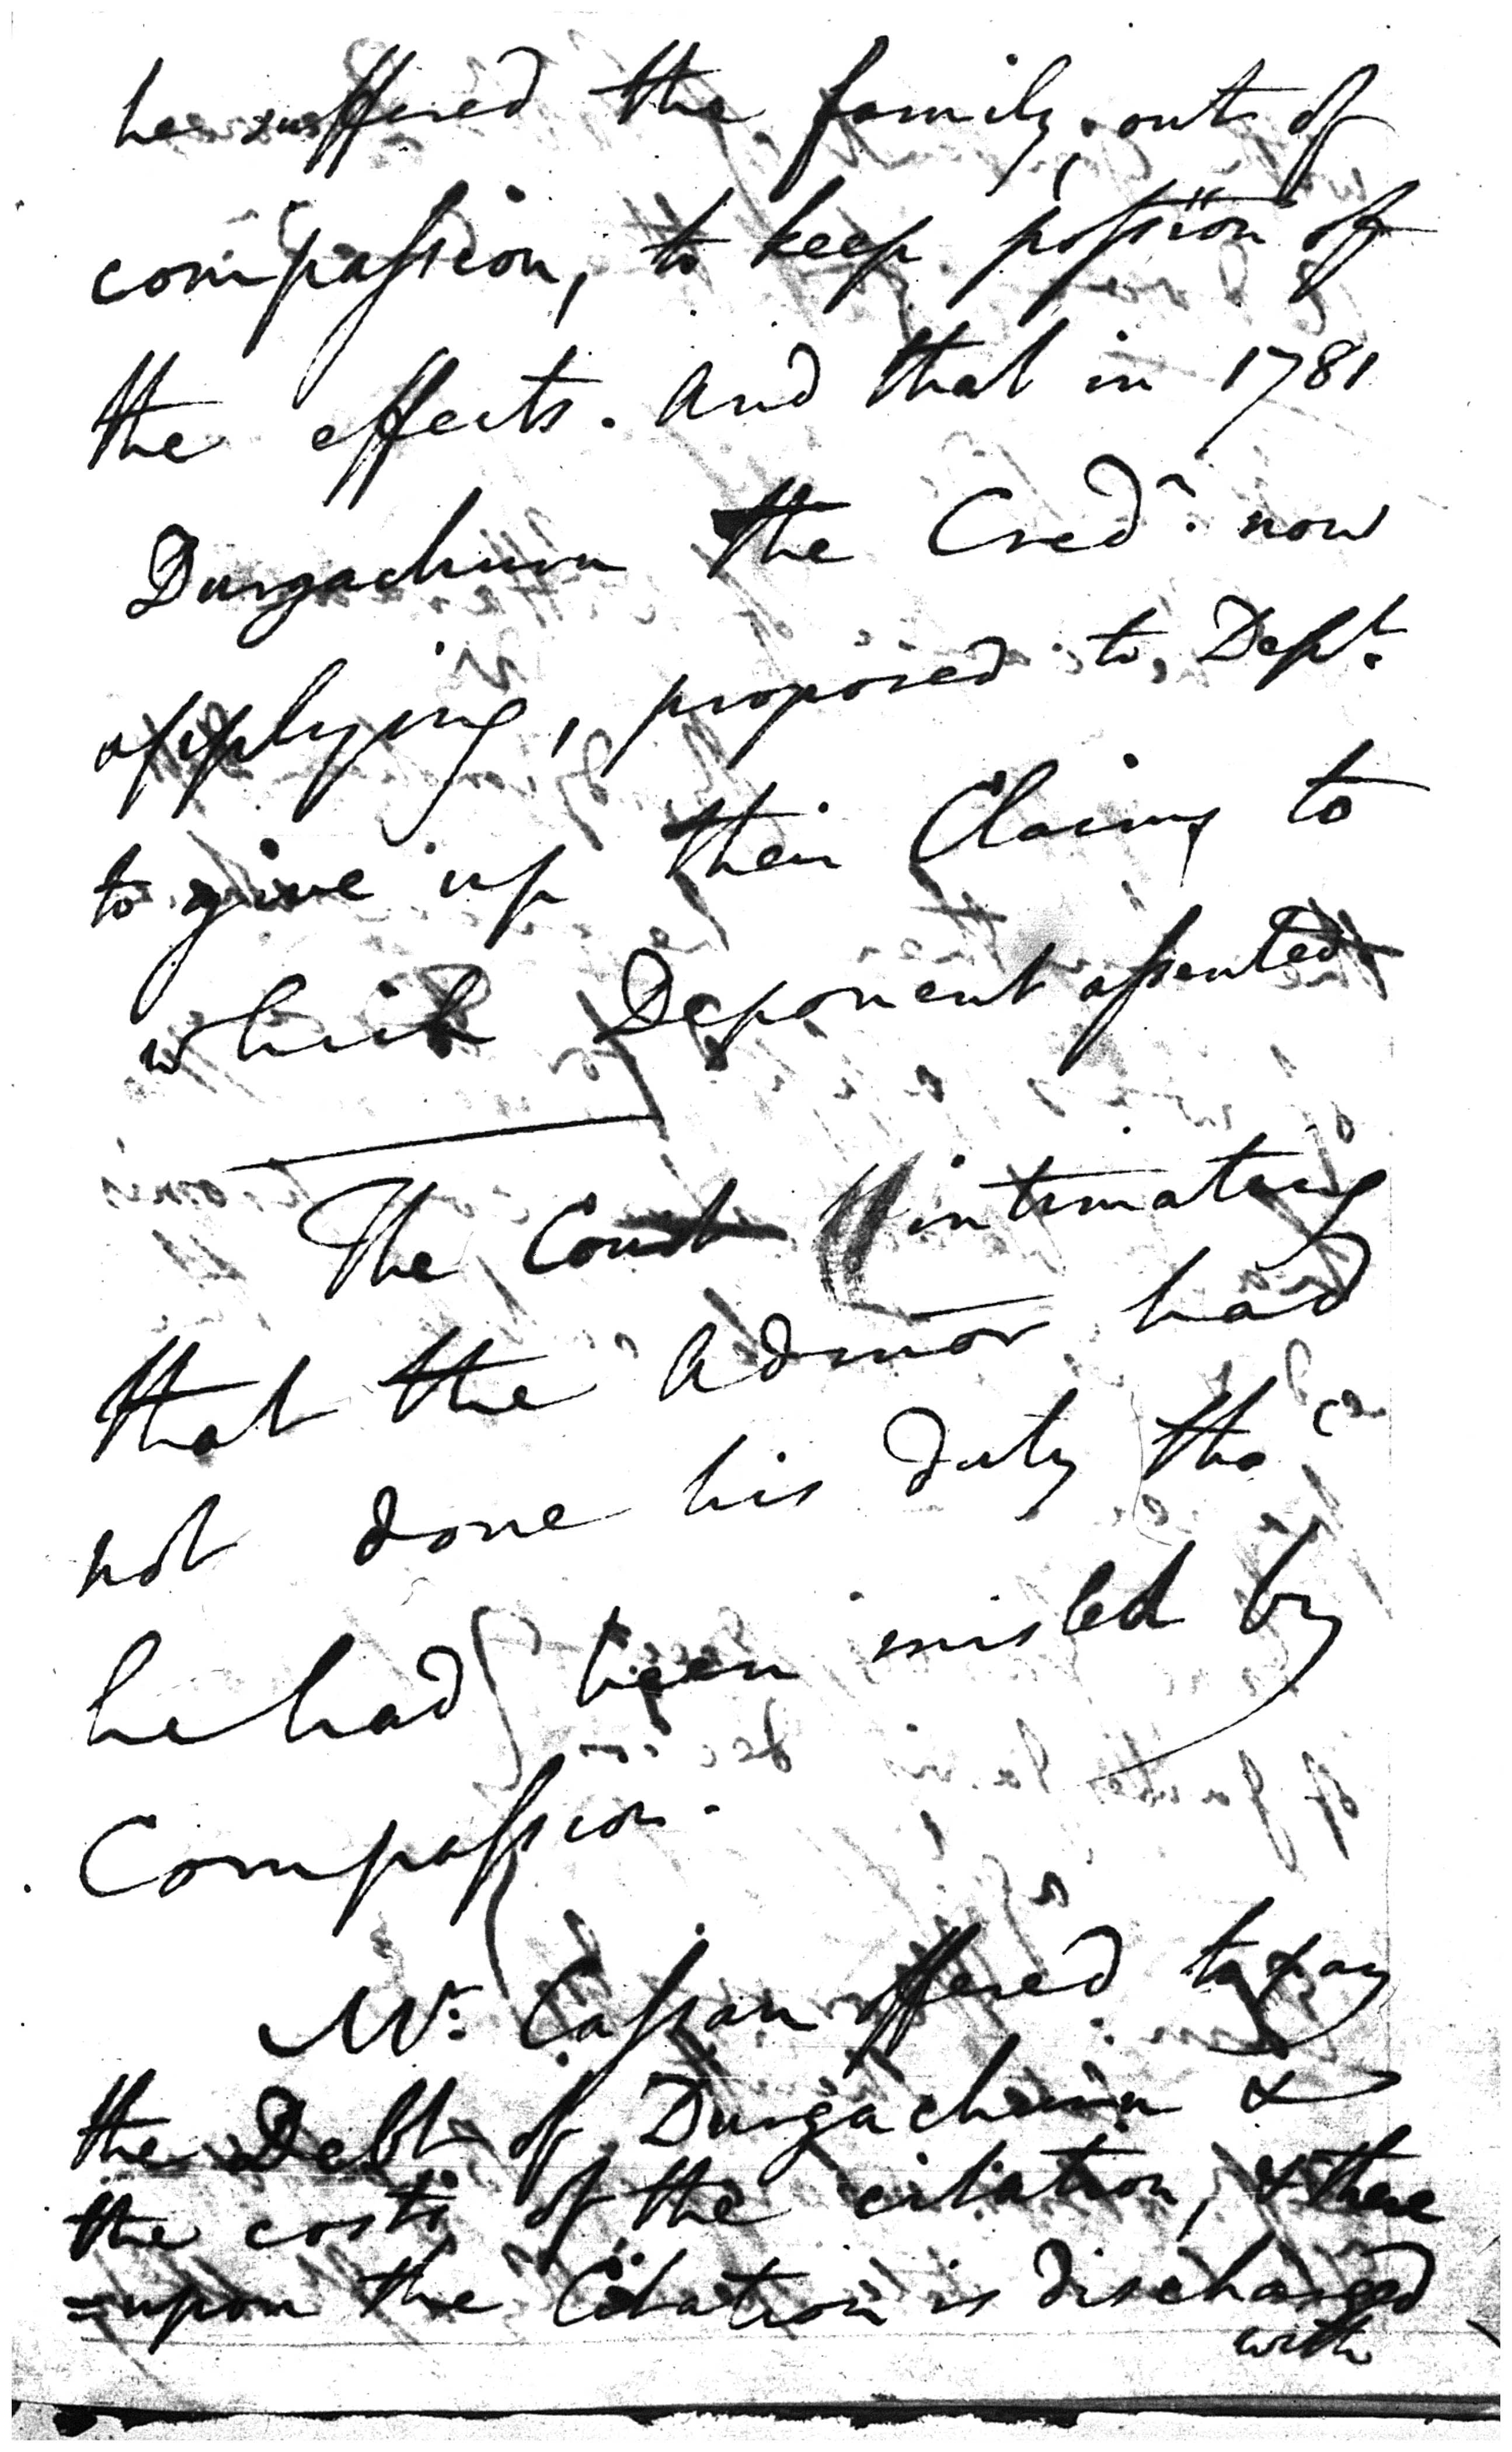 he suffered the family, out of
compassion, to keep possion of
the effects. And that in 1781
Durgachurn the Credr. now
applying, proposed to Dept.
to give up their Claims to
which Deponent assented
The Court intimating
that the Admor had
not done his duty tho'
he had been misled by
Compassion.
Mr. Cassan offered to pay
the Debt of Durgachurn &
the costs of the citation, & there
=upon the Citation is discharged
with